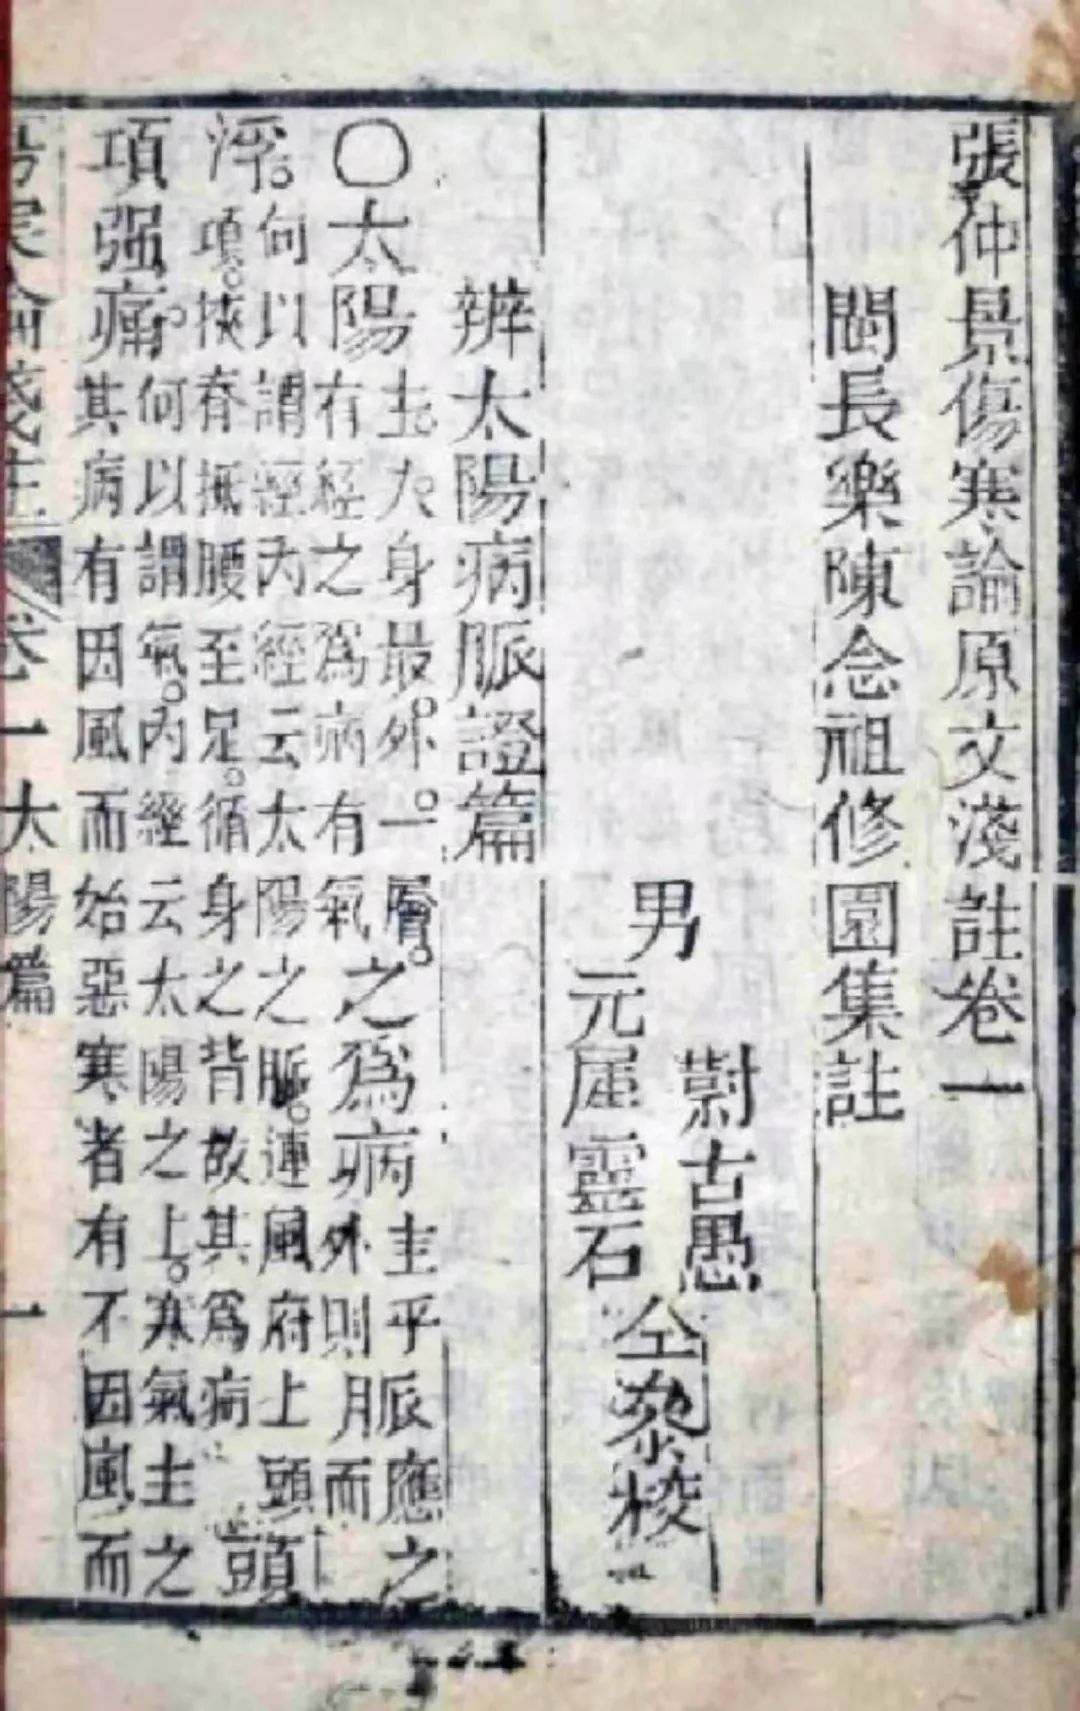 張仲景傷寒論原文淺註卷一
閩長樂陳念祖修園集註
男
蔚古愚
元犀靈石
仝叅校
辨太陽病脈證篇
○太陽
主人身最。外。一層。
有經之為病有氣
之為病
主乎脈應之
外則月而
浮。
何以謂經內經云太陽之脈。連風府上頭
項。挾脊抵腰至足。循身之背故其為病
頭
項强痛。
何以謂氣。內經云太陽之上。寒氣主之
其病有因風而始惡寒者有不因風而
傷寒論淺註
卷一太陽篇
一